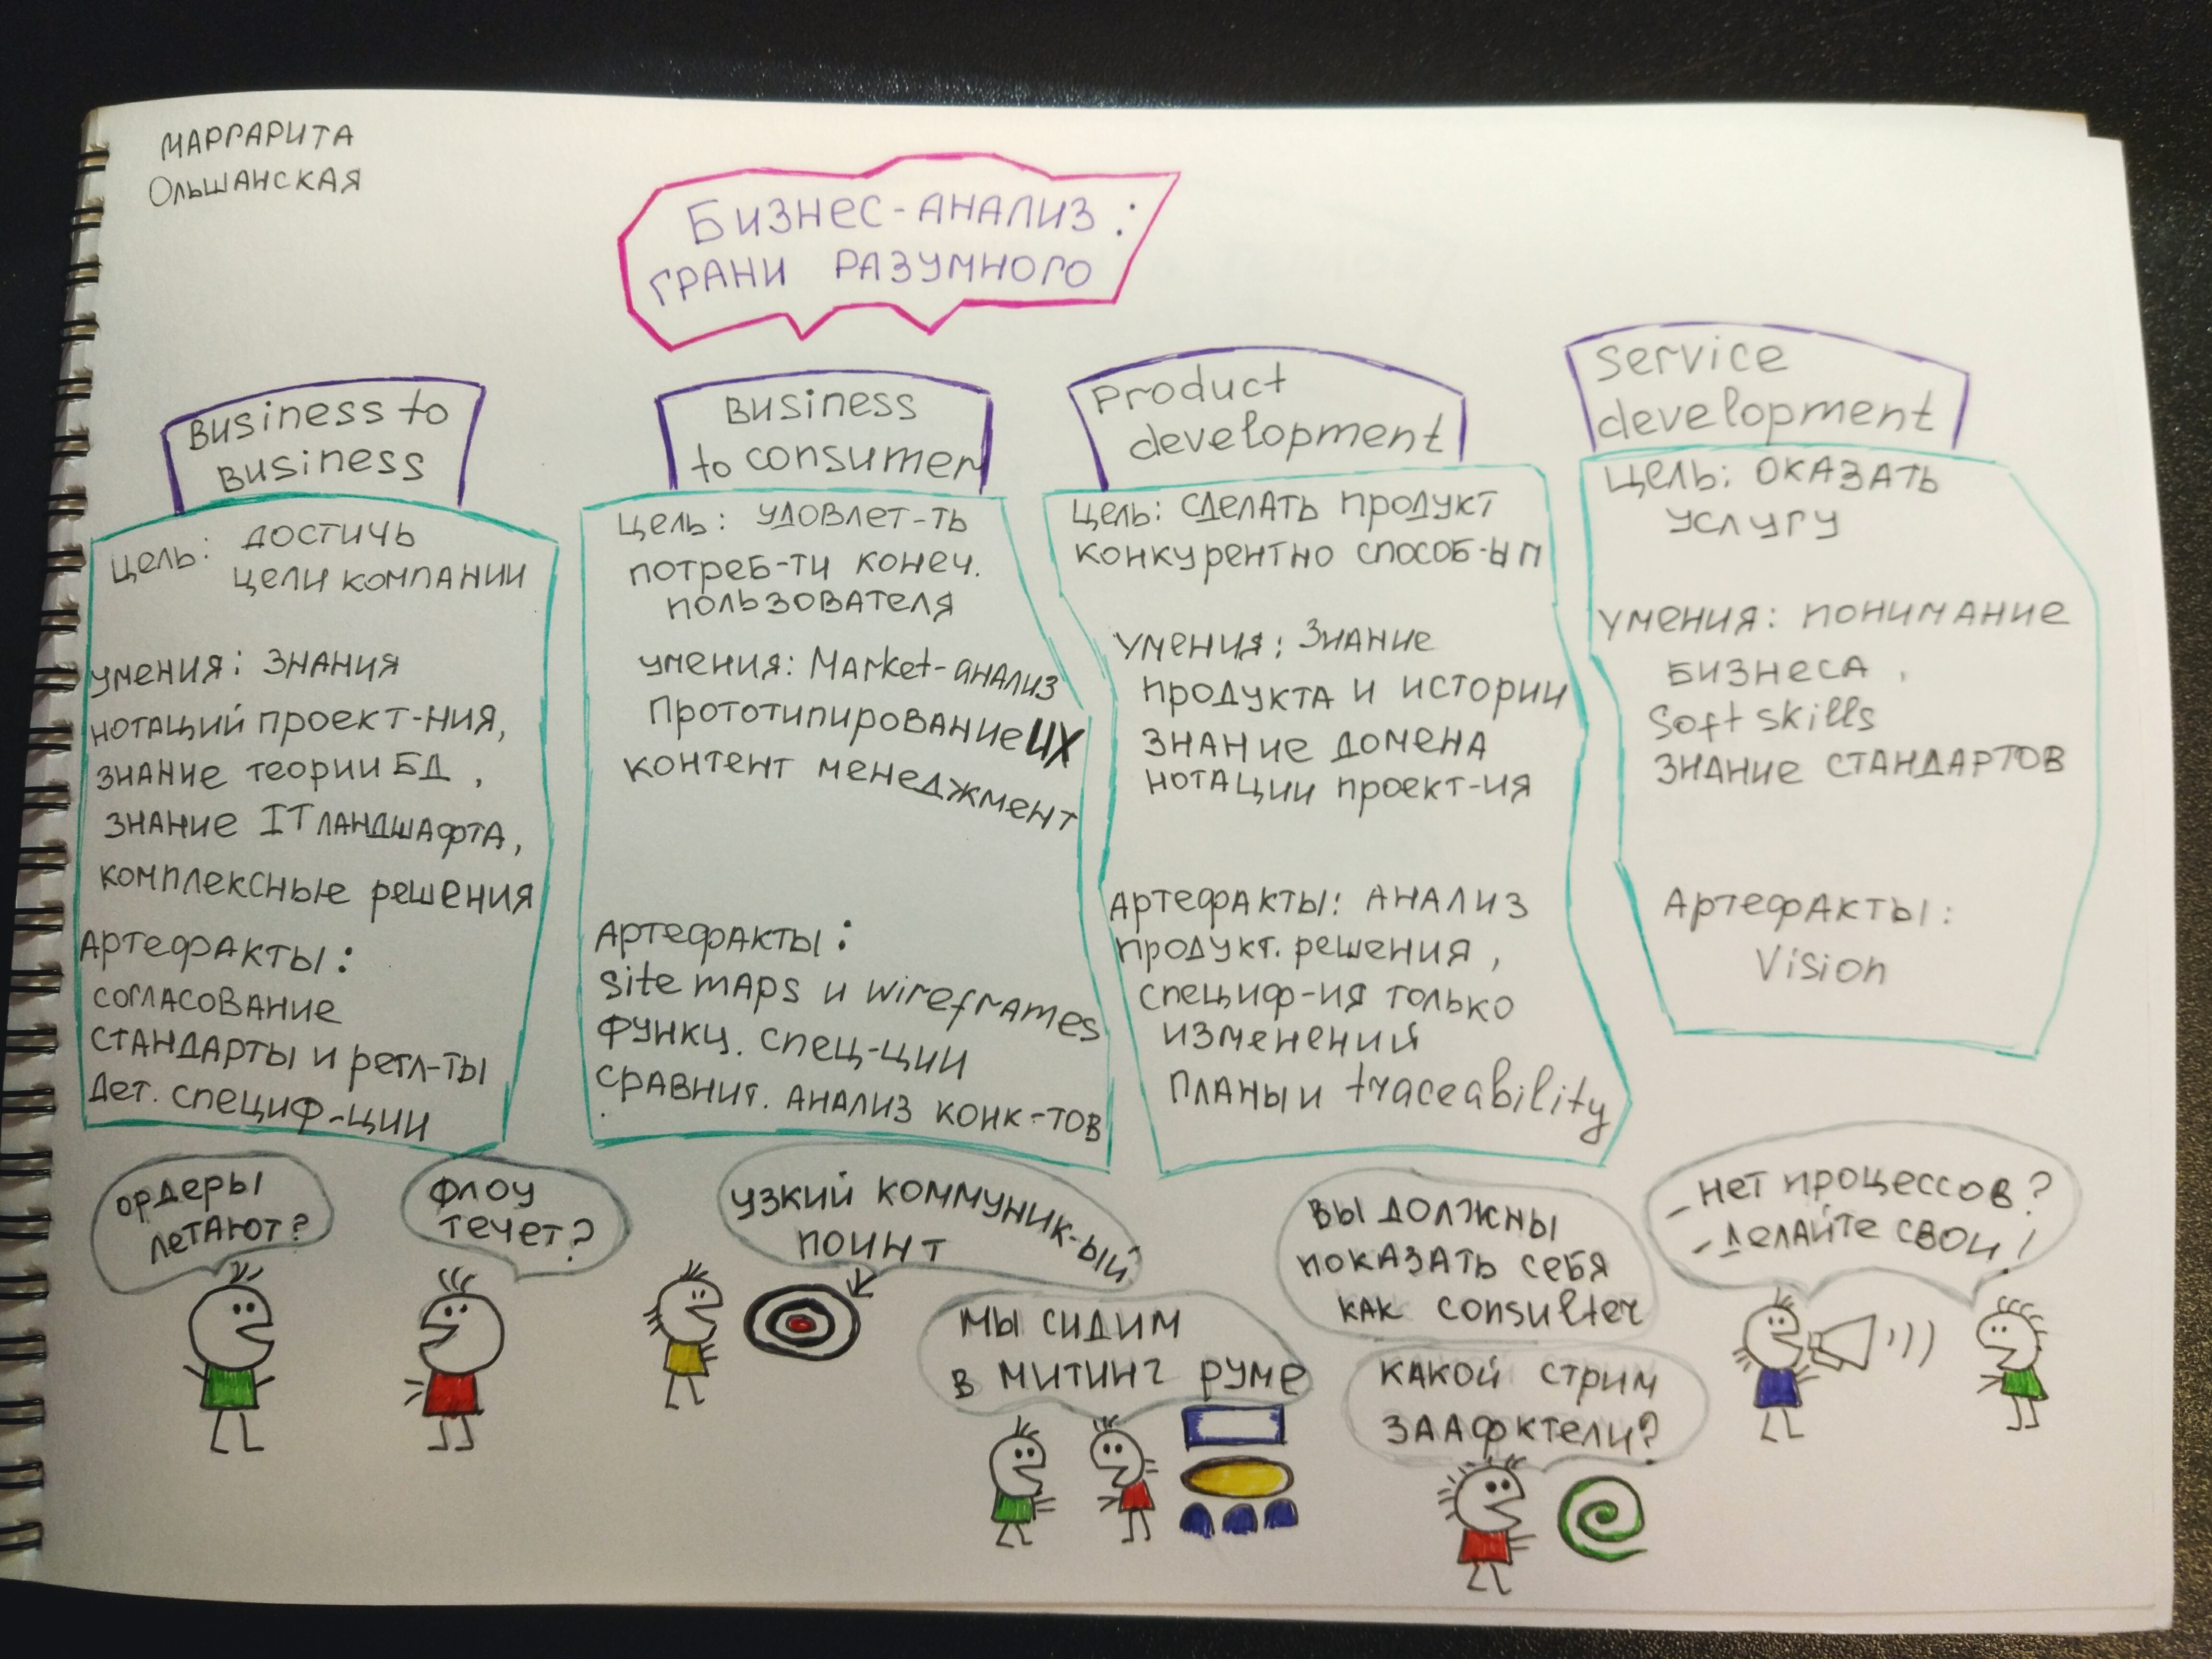 МАРГАРИТА
ОЛЬШАНСКАЯ
БИЗНЕС-АНАЛИЗ:
ГРАНИ РАЗУМНОГО
Business to
Business
Цель: достичь
цели компании
умения: знания
нотаций проект-ния,
знание теории БД,
знание IT ландшафта,
комплексные решения
Артефакты:
согласование
стандарты и регл-ты
Дет. специф-ции
Business
to consumer
Цель: удовлет-ть
потреб-ти конеч.
пользователя
умения: Market-анализ
Прототипирование UX
контент менеджмент
Артефакты:
site maps и wireframes
функц. спец-ции
сравнит. анализ конк-тов
Product
development
Цель: сделать продукт
конкурентно способ-ым
Умения: Знание
продукта и истории
знание домена
нотации проект-ия
Артефакты: анализ
продукт. решения,
специф-ия только
изменений
Планы и traceability
Service
development
Цель: оказать
услугу
умения: понимание
бизнеса,
Soft skills
знание стандартов
Артефакты:
Vision
ордеры
летают?
флоу
течет?
узкий коммуник-ый
поинт
мы сидим
в митинг руме
Вы должны
показать себя
как consulter
какой стрим
заафктели?
- нет процессов?
- делайте свои!